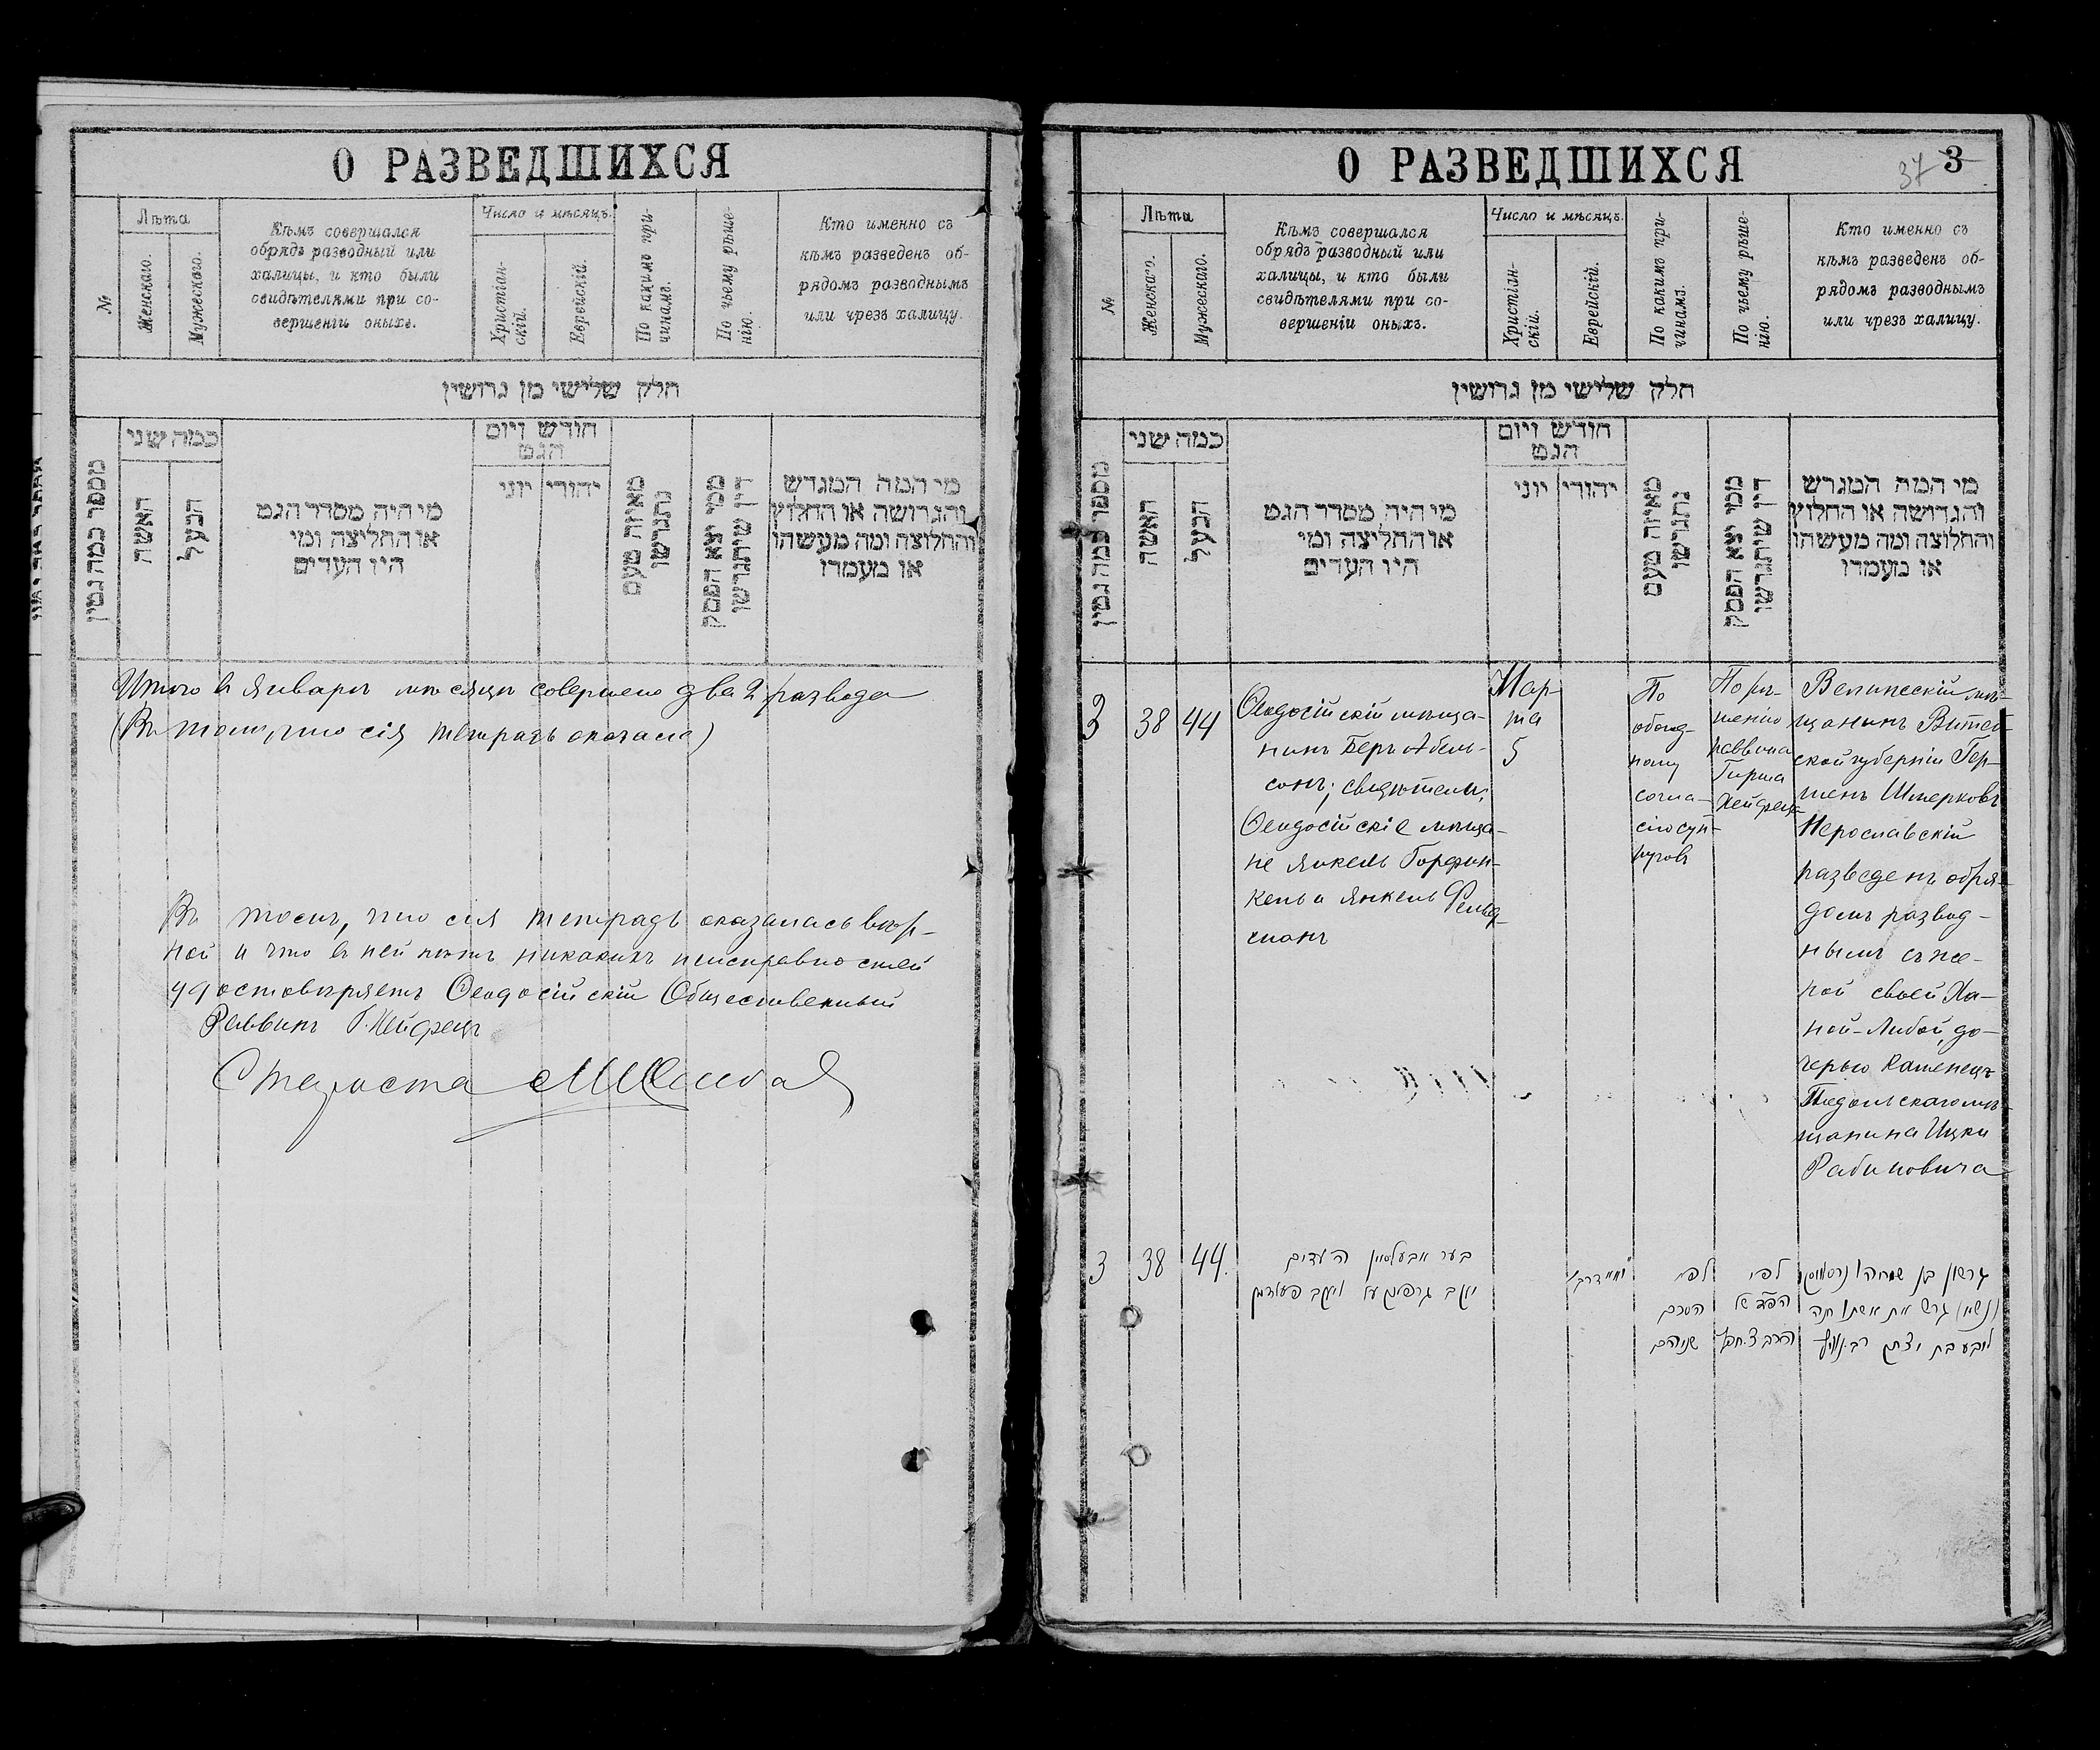 О РАЗВЕДШИХСЯ
№
Лѣта
Женскаго.
Мужескаго.
Кѣмъ совершался
обрядъ разводный или
халицы, и кто были
свидѣтелями при со-
вершеніи оныхъ.
Число и мѣсяцъ.
Христіан-
скій.
Еврейскій.
По какимъ при-
чинамъ.
По чьему рѣше-
нію.
Кто именно съ
кѣмъ разведенъ об-
рядомъ разводнымъ
или чрезъ халицу.
חלק שלישי מן גרושין
מספר כמה גטין
כמה שני
האשה
הבעל
מי היה מסדר הגט
או החליצה ומי
היו העדים
חודש ויום
הגט
יוני
יהודי
מאיזה טעם
נתגרשו
ממי יצא הפסק
דין שיתגרשו
מי המה המגרש
והגרושה או החלוץ
והחלוצה ומה מעשהו
או מעמדו
Итого въ Январѣ мѣсяцѣ совершено два 2 развода
(Въ томъ, что сія тетрадь оказалас)
Въ томъ, что сія тетрадь оказалась вѣр-
ной и что въ ней нѣтъ никакихъ неисправностей
удостовѣряетъ Ѳеодосійскій Общественный
Раввинъ Г. Хейфецъ
Староста
О РАЗВЕДШИХСЯ
37 3
№
Лѣта
Женскаго.
Мужескаго.
Кѣмъ совершался
обрядъ разводный или
халицы, и кто были
свидѣтелями при со-
вершеніи оныхъ.
Число и мѣсяцъ.
Христіан-
скій.
Еврейскій.
По какимъ при-
чинамъ.
По чьему рѣше-
нію.
Кто именно съ
кѣмъ разведенъ об-
рядомъ разводнымъ
или чрезъ халицу.
חלק שלישי מן גרושין
מספר כמה גטין
כמה שני
האשה
הבעל
מי היה מסדר הגט
או החליצה ומי
היו העדים
חודש ויום
הגט
יוני
יהודי
מאיזה טעם
נתגרשו
ממי יצא הפסק
דין שיתגרשו
מי המה המגרש
והגרושה או החלוץ
והחלוצה ומה מעשהו
או מעמדו
3
38
44
Ѳеодосійскій мѣща-
нинъ Беръ Абель-
сонъ; свидѣтели:
Ѳеодосійскіе мѣща-
не Янкель Горфин-
кель и Янкель Фельд-
манъ
Мар-
та
5
По
обоюд-
ному
согла-
сію суп-
руговъ
По рѣ-
шенію
раввина
Гирша
Хейфеца
Велижскій мѣ-
щанинъ Витеб-
ской губерніи Гер-
шенъ Шмерковъ
Нерославскій
разведенъ обря-
домъ развод-
нымъ съ же-
ной своей Ха-
ной-Либой, до-
черью Каменецъ
Подольскаго мѣ-
щанина Ицки
Рабиновича
3
38
44.
בער אבעלסאן העדים
יעקב גרפינקעל ויעקב פעלדמן
לפי
הסכם
שניהם
לפי
הפסד של
הרב צ. חפץ
גרשון בן שמריהו
גרש את אשתו חנה
ליבע בת יצחק רבינוויץ